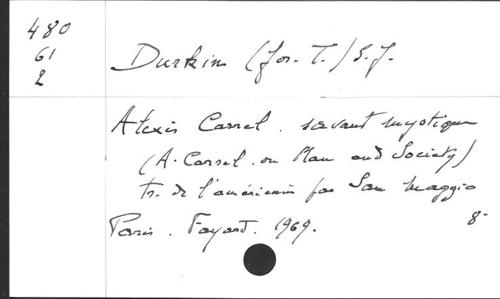 480
61
2
Durkin (Jos. T.) S.J.
Alexis Carrel. savant mystique
(A. Carrel. on Man and Society)
tr. de l'américain par San Maggio
Paris. Fayard. 1969.
8°